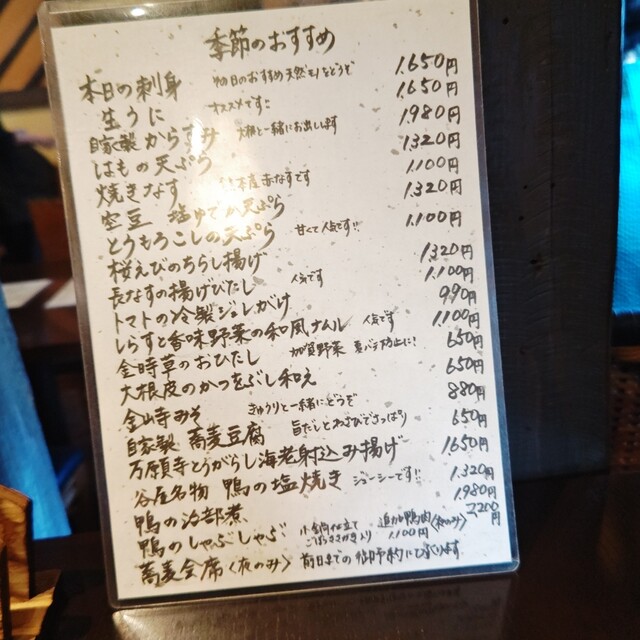 季節のおすすめ
本日の刺身 今日のおすすめ天然モノなどうぞ 1,650円
生うに オススメです!! 1,650円
自家製からすみ 大根と一緒にお出します 1,980円
はもの天ぷら 1,320円
焼きなす 産赤なすです 1,100円
空豆 塩ゆでか天ぷら 1,320円
とうもろこしの天ぷら 甘くて人気です!! 1,100円
桜えびのちらし揚げ 1,320円
長なすの揚げびたし 人気です 1,100円
トマトの冷製ジュレがけ 990円
しらすと香味野菜の和風ナムル 人気です 1,100円
金時草のおひたし 加賀野菜 夏バテ防止に! 650円
大根皮のかつをぶし和え 650円
金山寺みそ きゅうりと一緒にどうぞ 880円
自家製 蕎麦豆腐 旨だしとわさびでさっぱり 650円
万願寺とうがらし海老射込み揚げ 1,650円
谷屋名物 鴨の塩焼き ジューシーです!! 1,320円
鴨の治部煮 1,980円
鴨のしゃぶしゃぶ 小鍋仕立て ごぼうささがき入り 追加鴨肉(夜のみ) 1,100円 2,200円
蕎麦会席〈夜のみ〉 前日までの御予約になります